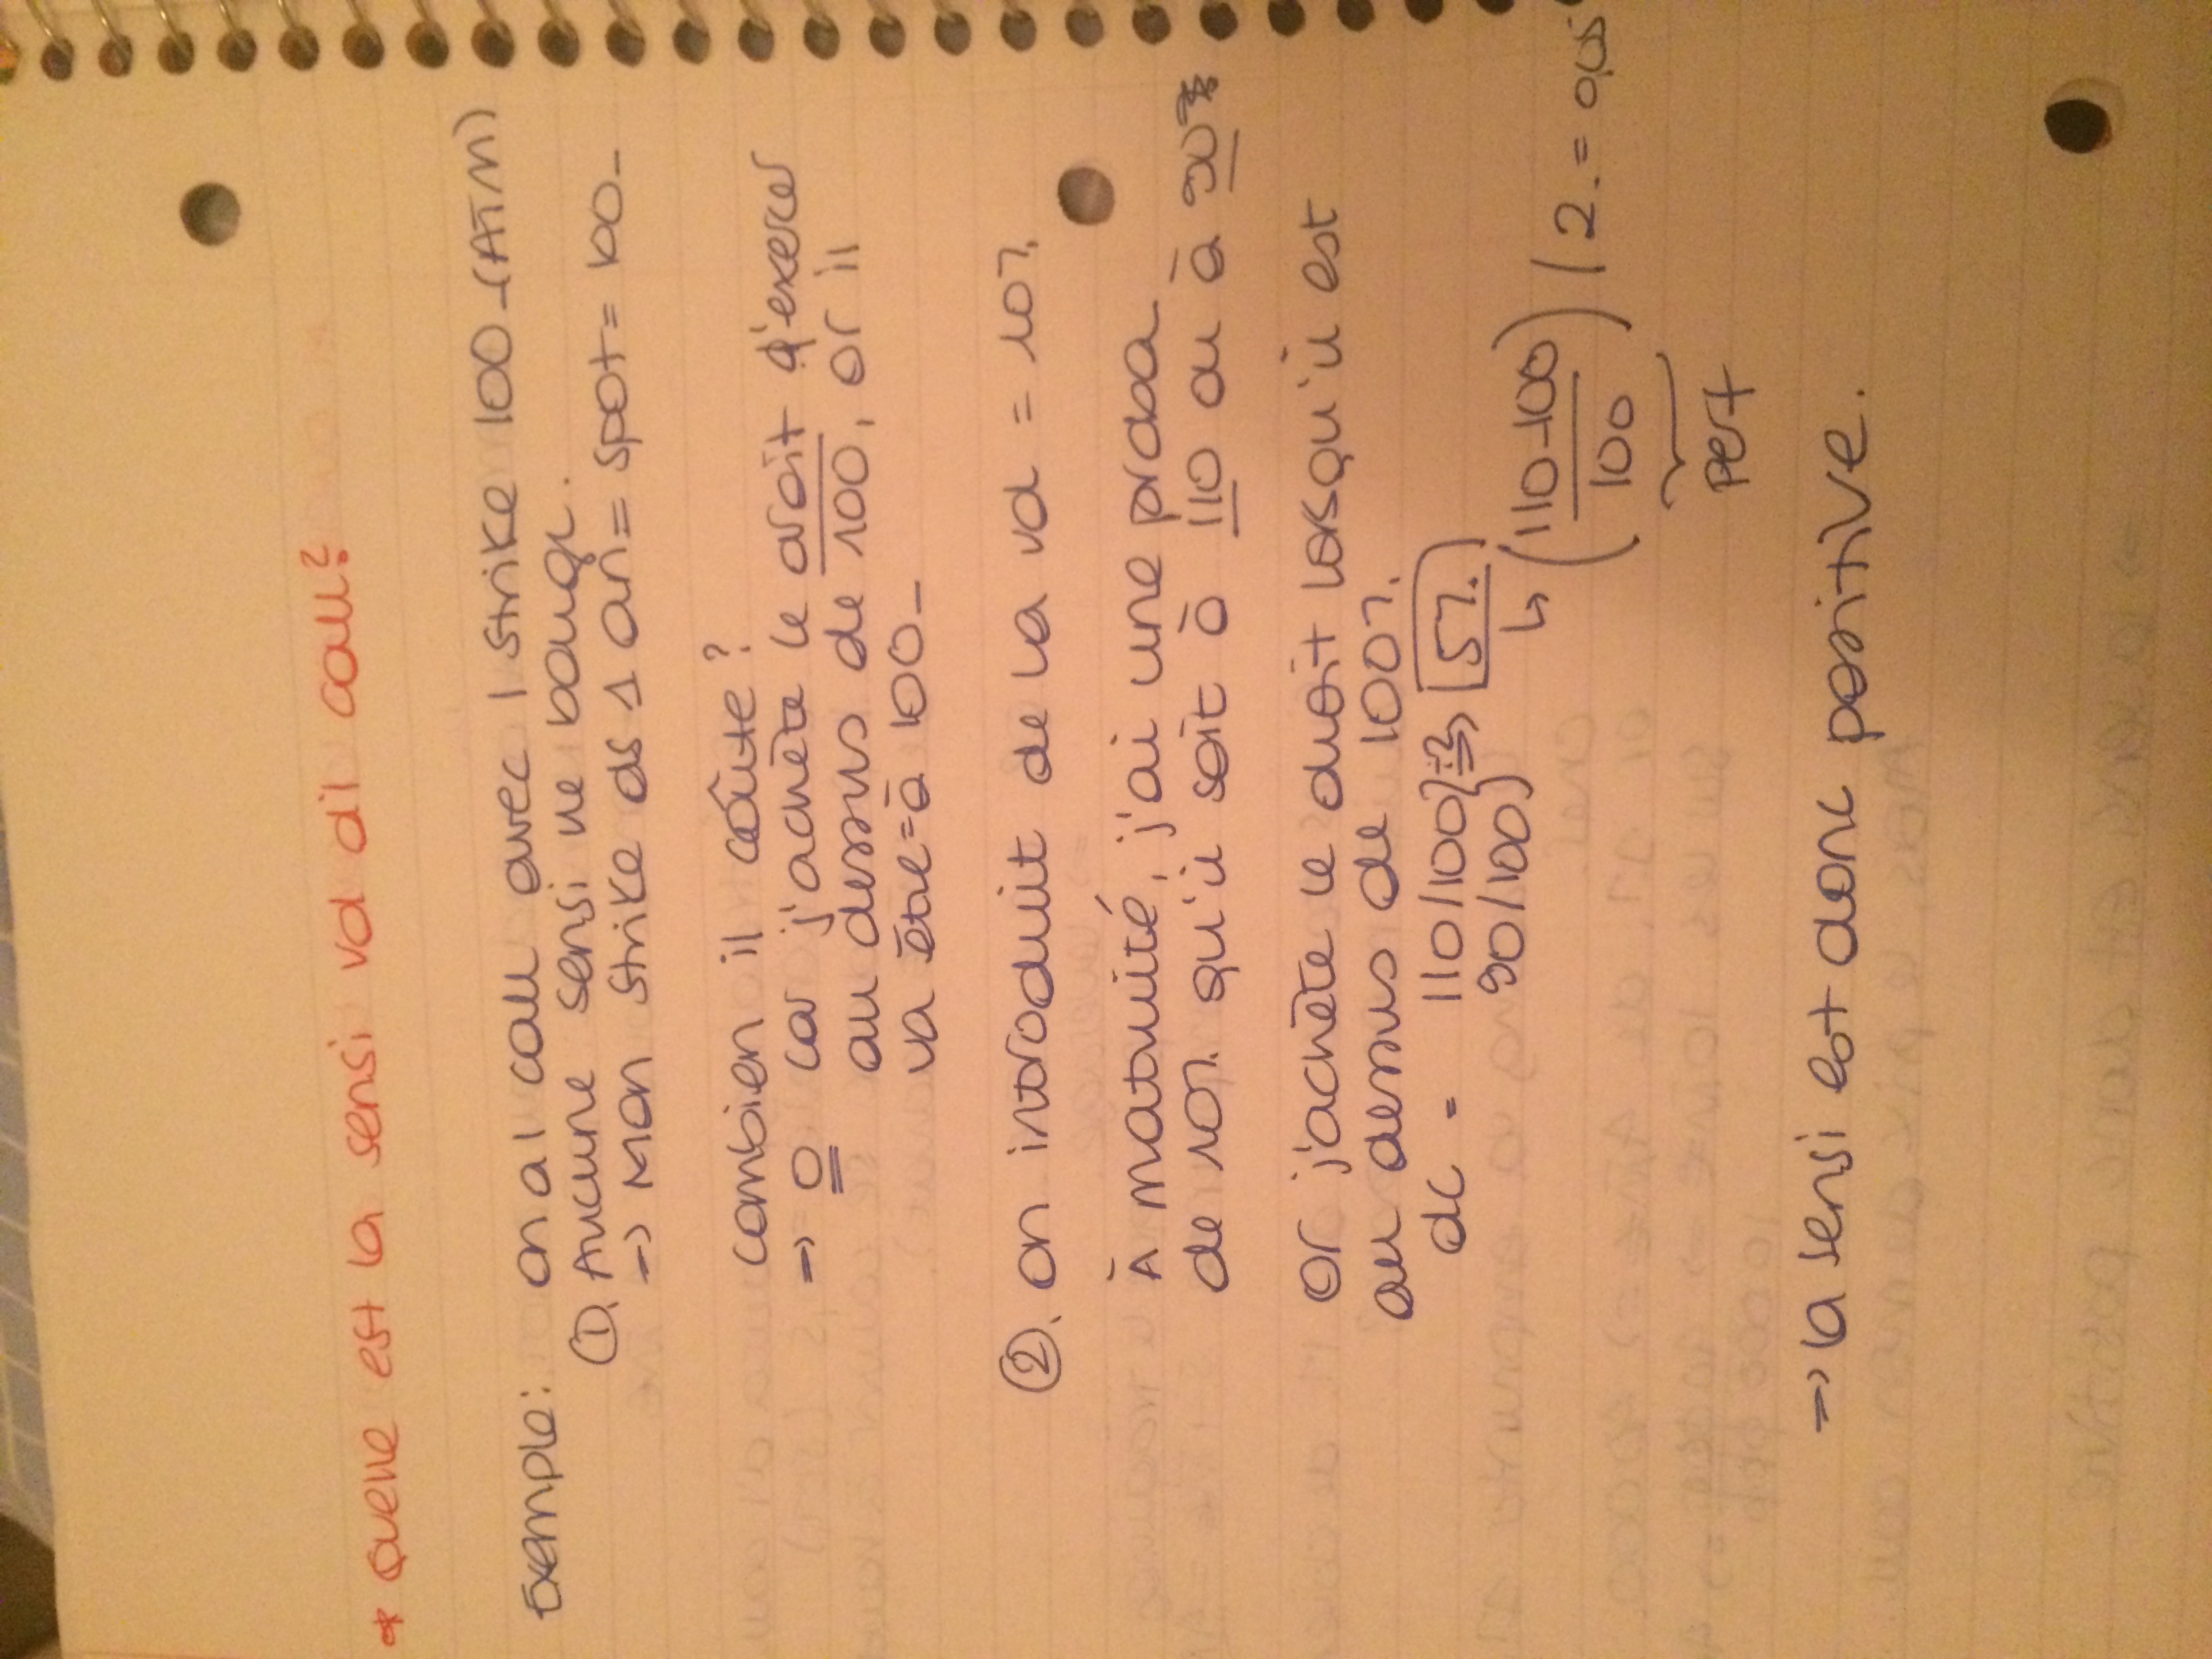 * Quelle est la sensi vol d'1 call?
Exemple: on a 1 call avec 1 strike 100_(ATM)
①. Aucune sensi ne bouge.
→ Mon strike ds 1 an = spot = 100_
combien il coûte ?
→ 0 car j'achète le droit d'exercer
au dessus de 100, or il
va être = à 100_
②. on introduit de la vol = 10%.
À maturité, j'ai une proba
de 10% qu'il soit à 110 ou à 90
Or j'achète le droit lorsqu'il est
au dessus de 100%.
dc = 110/100 } ÷2 ⇒ 5%.
90/100 }
↳ (110-100 / 100) / 2. = 0,05
perf
→ la sensi est donc positive.